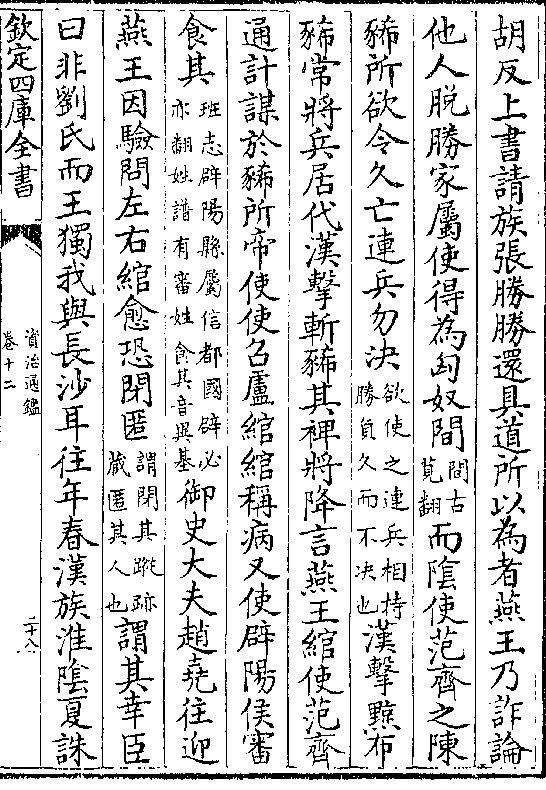 胡反上書請族張勝勝還具道所以為者燕王乃詐論
他人脱勝家屬使得為匈奴間間古莧翻而隂使范齊之陳
豨所欲令久亡連兵勿决欲使之連兵相持勝負久而不决也漢擊黥布
豨常將兵居代漢擊斬豨其裨將降言燕王綰使范齊
通計謀於豨所帝使使召盧綰綰稱病又使辟陽侯審
食其班志辟陽縣屬信都國辟必亦翻姓譜有審姓食其音異基御史大夫趙堯往迎
燕王因驗問左右綰愈恐閉匿謂閉其蹤跡藏匿其人也謂其幸臣
曰非劉氏而王獨我與長沙耳往年春漢族淮隂夏誅
欽定四庫全書
資治通鑑
卷十二
二十八